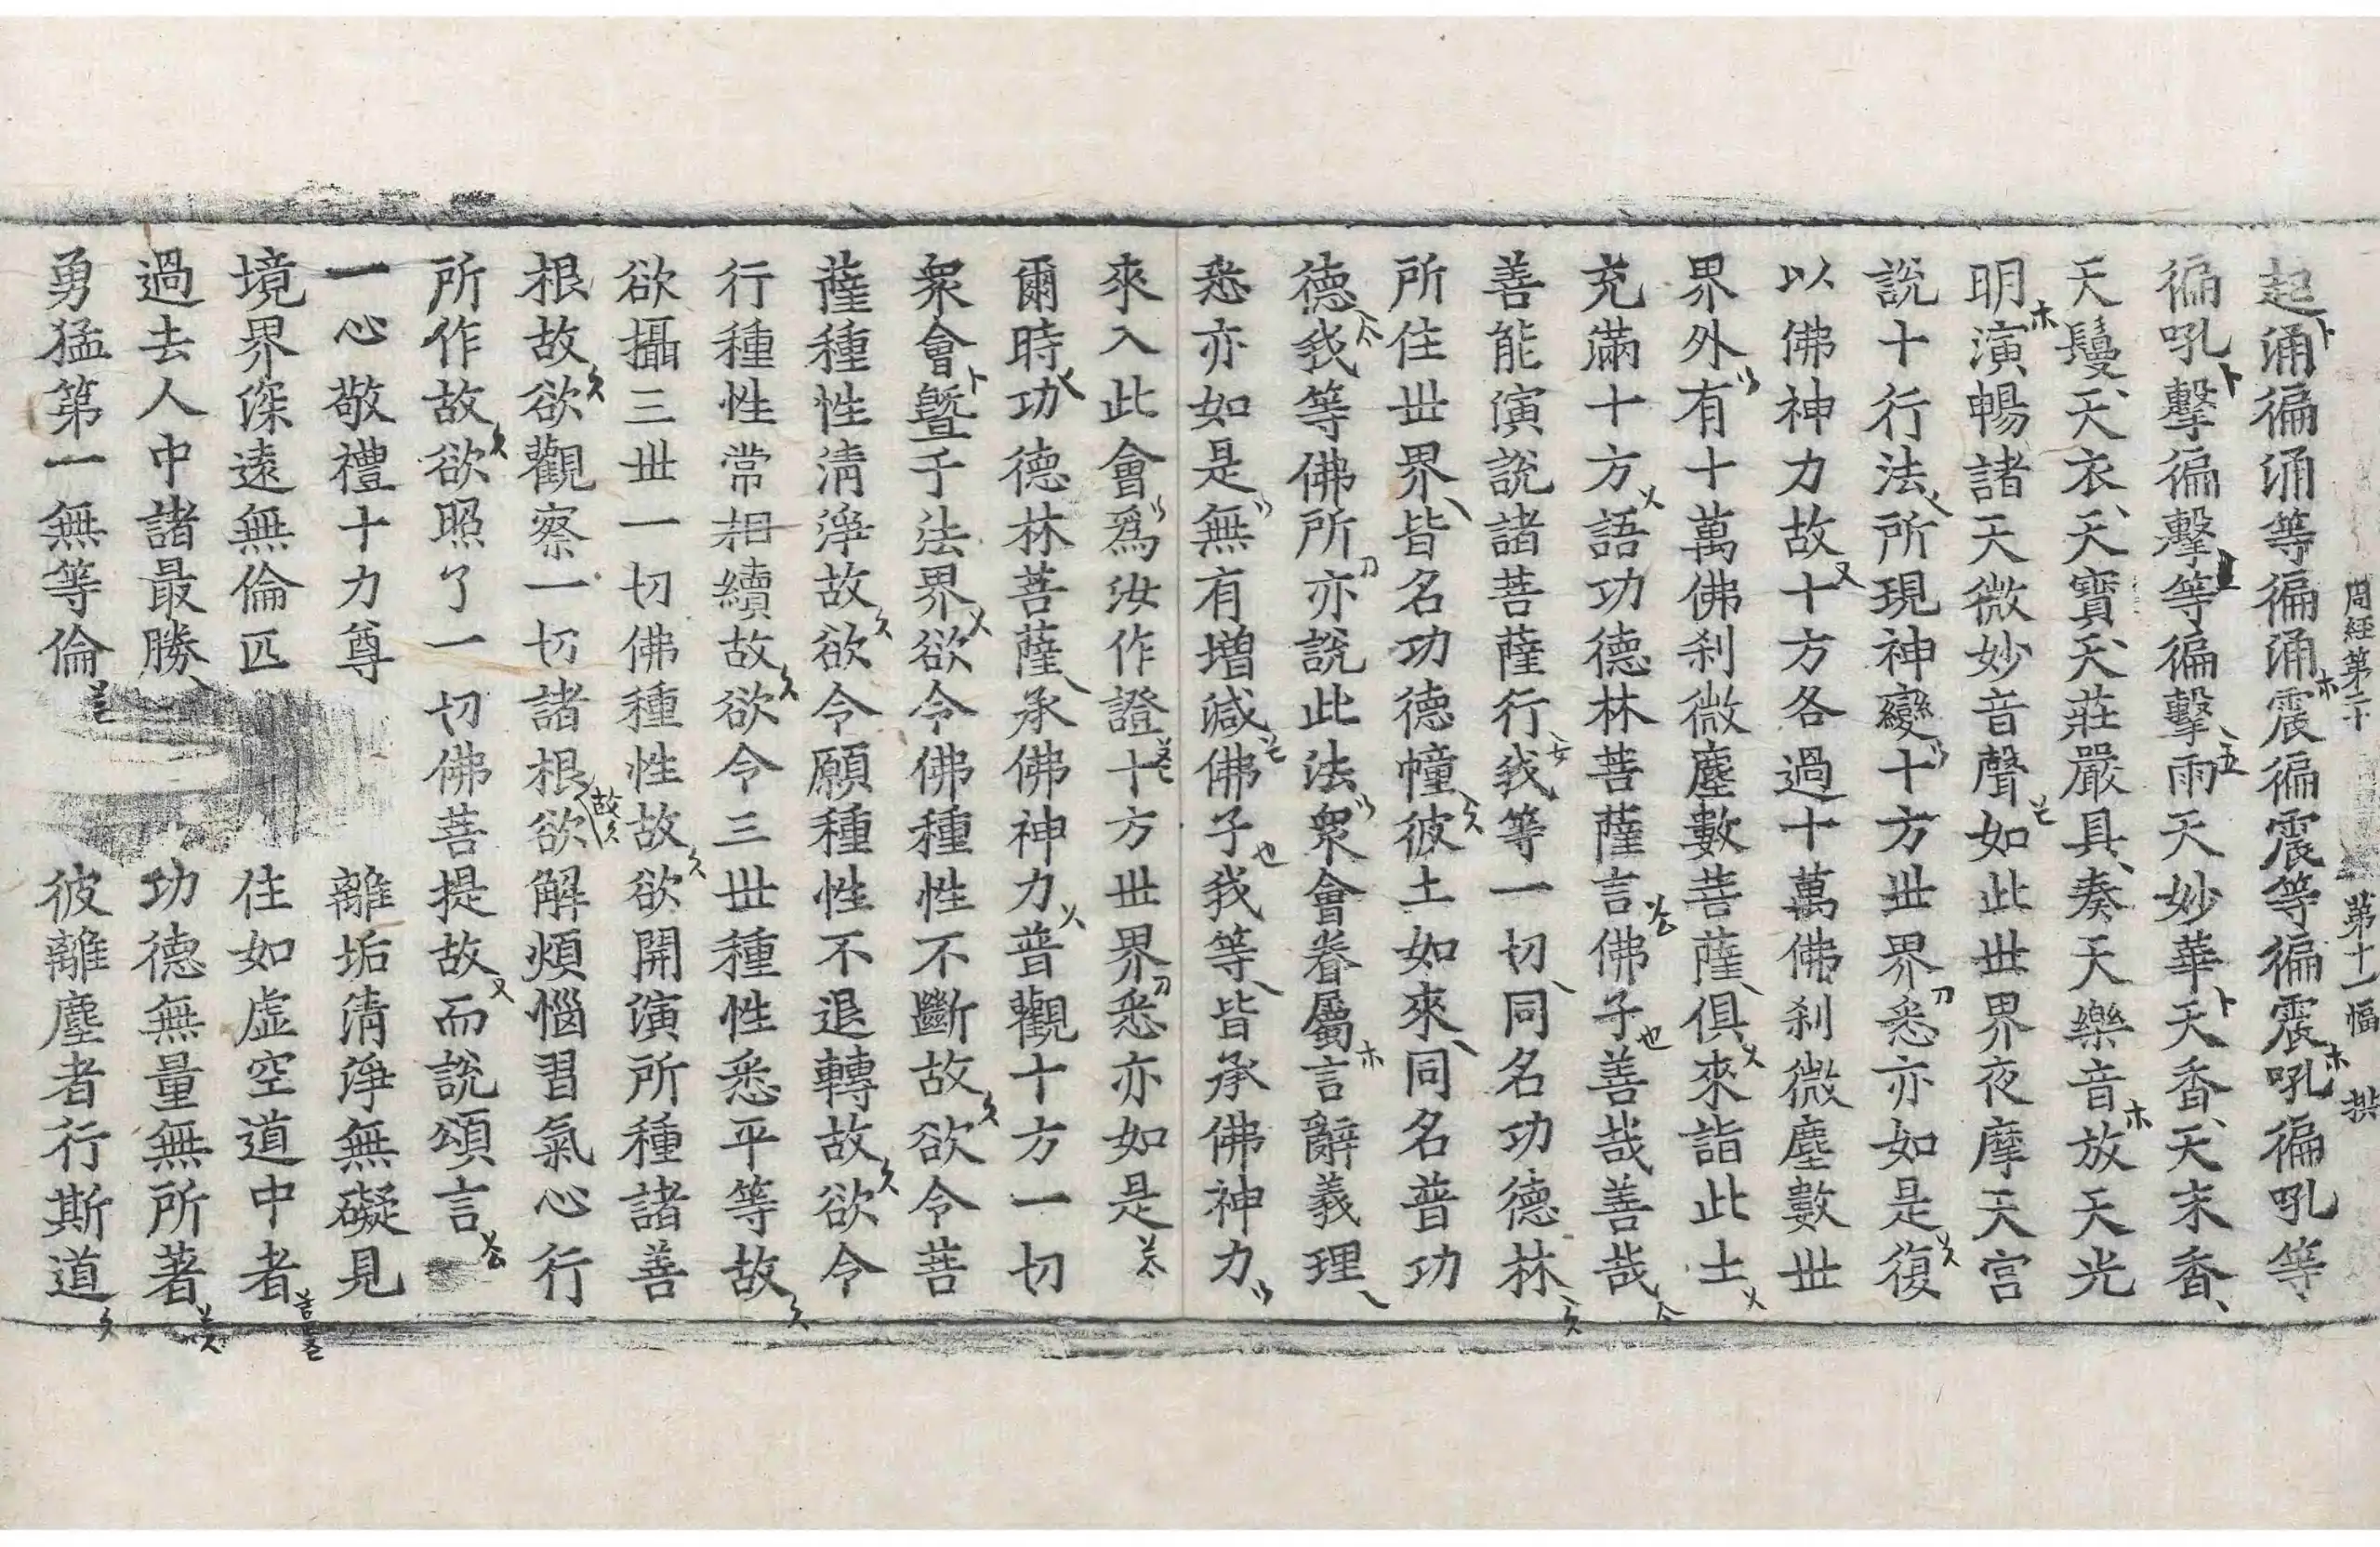 周經第二十 第十一幅
起涌徧涌等徧涌震徧震等徧震吼徧吼等
徧吼擊徧擊等徧擊雨天妙華天香天末香
天鬘天衣天寶天莊嚴具奏天樂音放天光
明演暢諸天微妙音聲如此世界夜摩天宮
說十行法所現神變十方丗界悉亦如是復
以佛神力故十方各過十萬佛刹微塵數丗
界外有十萬佛刹微塵數菩薩俱來詣此土
充滿十方語功德林菩薩言佛子善哉善哉
善能演說諸菩薩行我等一切同名功德林
所住丗界皆名功德幢彼土如來同名普功
德我等佛所亦說此法衆會眷屬言辭義理
悉亦如是無有增減佛子我等皆承佛神力
來入此會爲汝作證十方丗界悉亦如是
爾時功德林菩薩承佛神力普觀十方一切
衆會曁于法界欲令佛種性不斷故欲令菩
薩種性淸淨故欲令願種性不退轉故欲令
行種性常相續故欲令三丗種性悉平等故
欲攝三丗一切佛種性故欲開演所種諸善
根故欲觀察一切諸根故欲解煩惱習氣心行
所作故欲照了一切佛菩提故而說頌言
一心敬禮十力尊 離垢淸淨無礙見
境界深遠無倫匹 住如虛空道中者
過去人中諸最勝 功德無量無所著
勇猛第一無等倫 彼離塵者行斯道